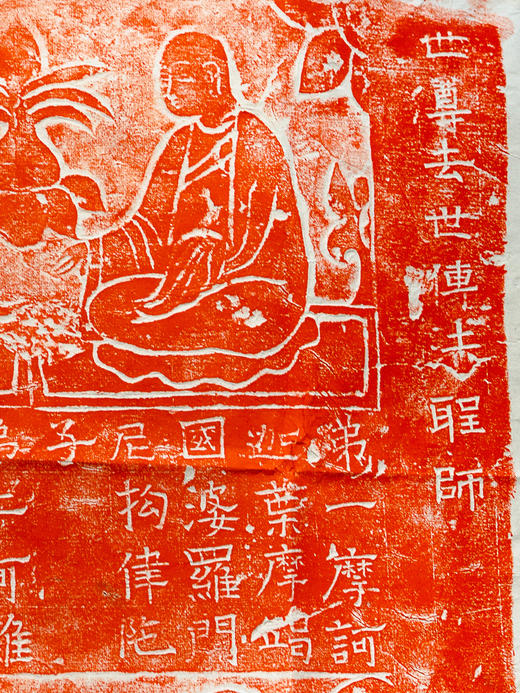 世尊去世傳法聖師
第一摩訶
迦葉摩竭
國婆羅門
尼拘律陀
子